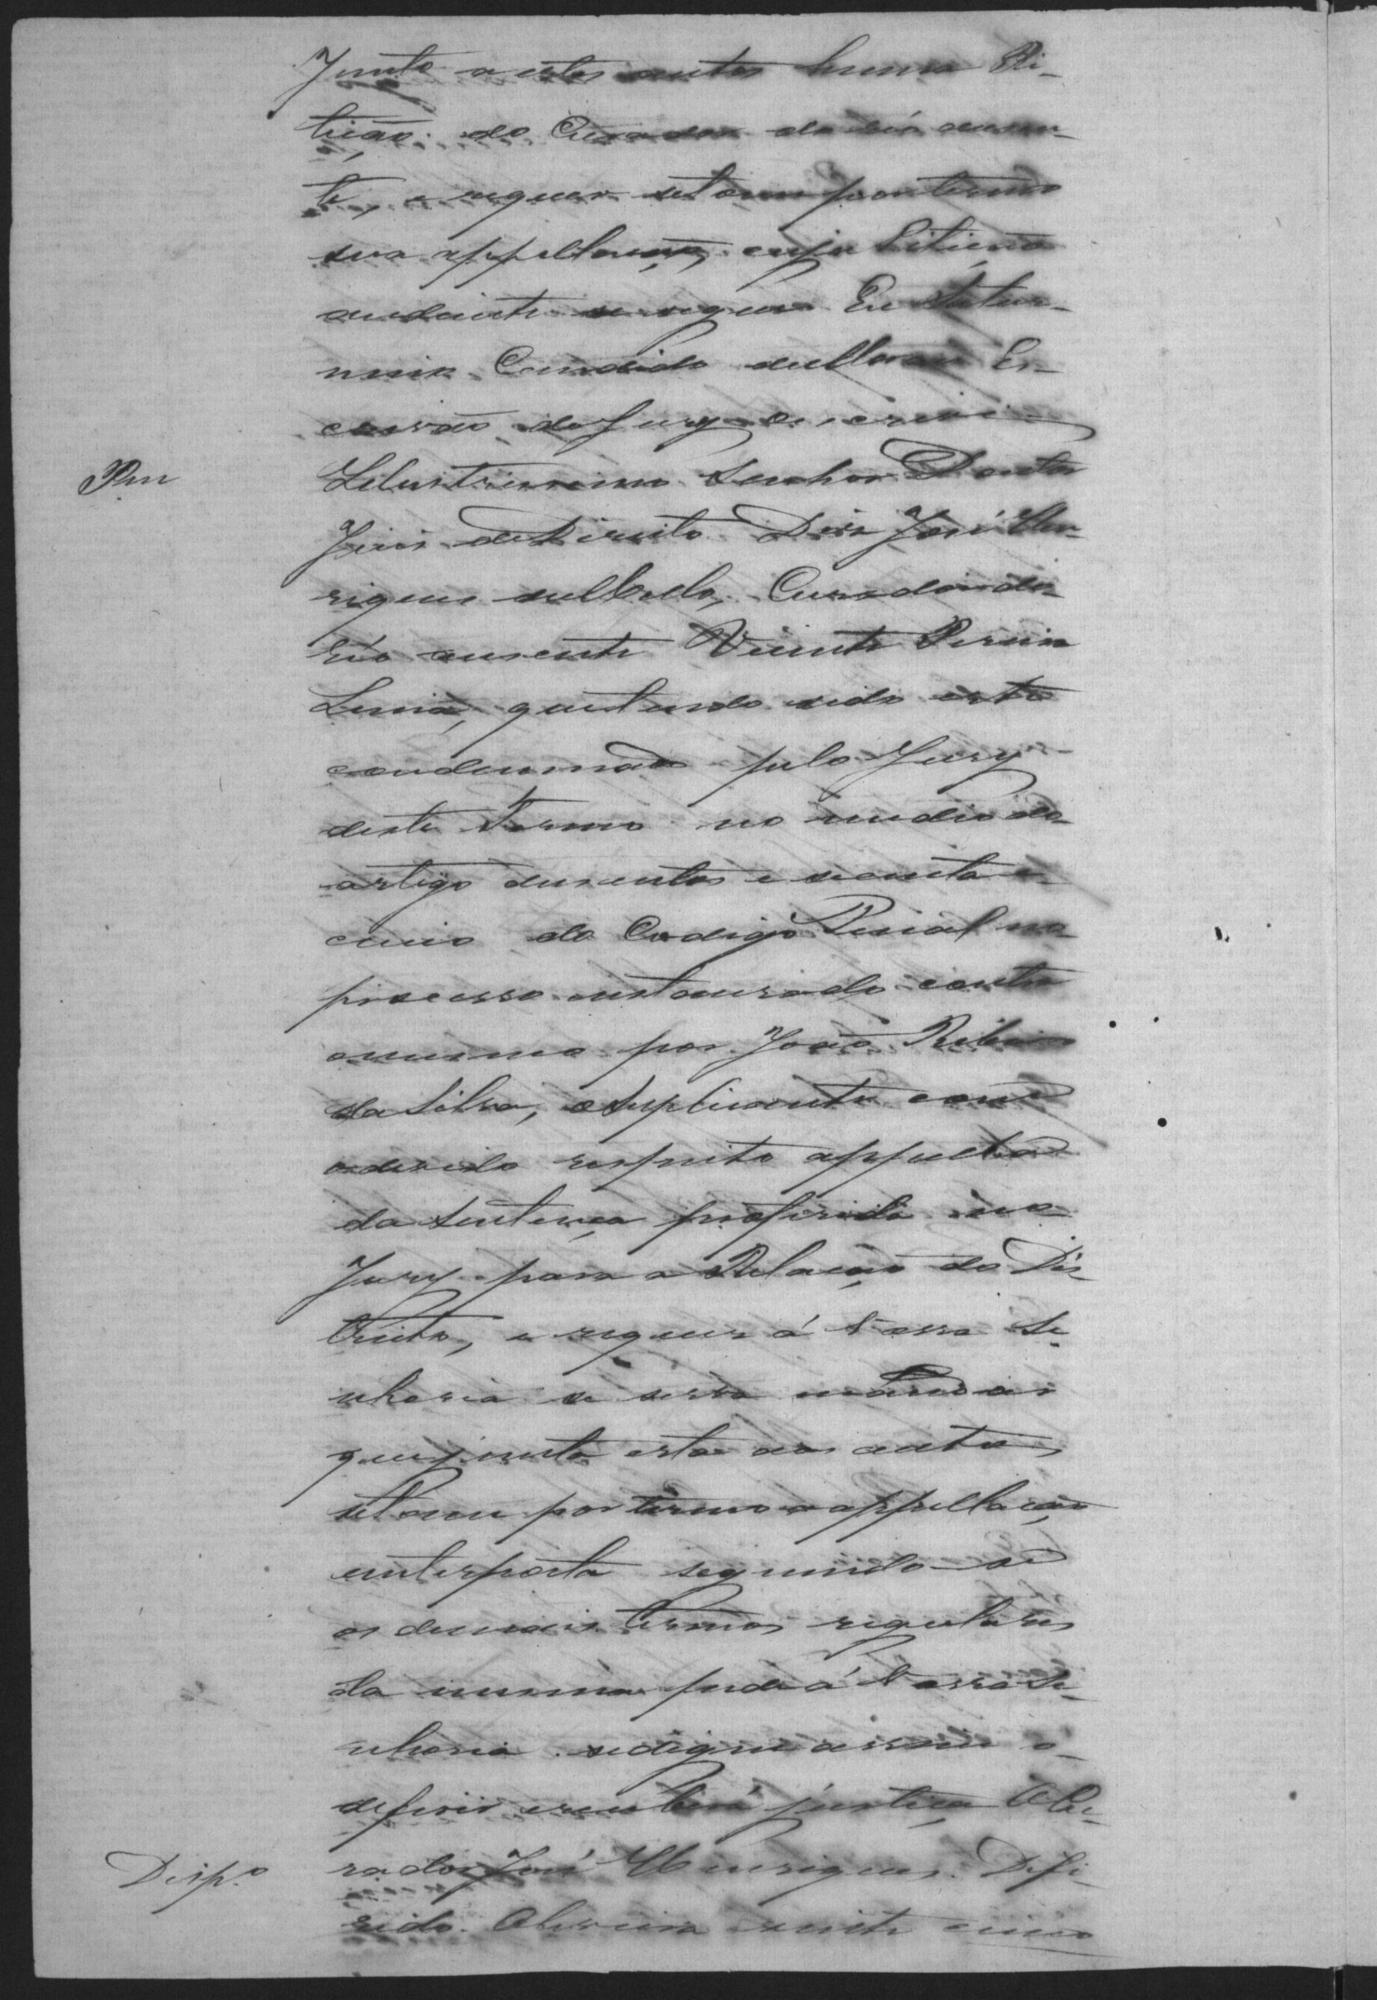 Junto a estes autos huma Pi-
tição do Curador do réo ausen-
te, e requer se tome por termo
sua appellação, cuja Pitição
audiante se segue. Eu
Candido de Moraes Es-
crivão do Jury escrevi
Pm
Illustrissimo Senhor Doutor
Juis de Direito. Dis José Hen-
riques de Mello, Curador do
réo ausente Vicente Pereira
Lima, que tendo sido este
condemnado pelo Jury
deste Termo no medio do
artigo dusentos e secenta e
cinco do Codigo Penal no
processo instaurado contra
o mesmo por João Ribeiro
da Silva, o supplicante com
o devido respeito appella
da sentença proferida no
Jury para a Relação do Dis-
tricto, e requer á Vossa Se-
nhoria se serva mandar
que junta esta aos autos,
se tome por termo a appellação
interposta seguindo-se
os demais termos regulares
da mesma pede á Vossa Se-
nhoria se digne assim o
deferir e receberá justiça, O Cu-
rador José Henriques. Defi-
Desp.o
rido. Oliveira vinte cinco